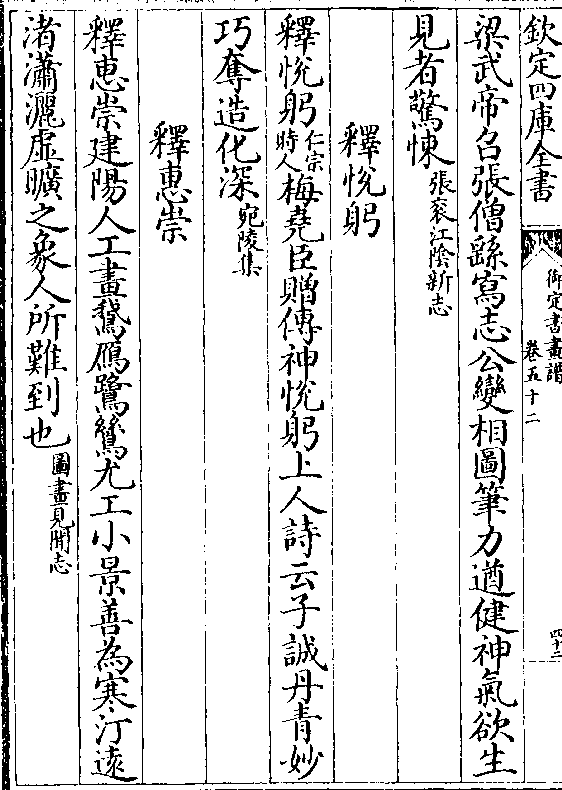 欽定四庫全書
御定書畫譜
卷五十二
四十二
梁武帝召張僧繇寫志公變相圖筆力遒健神氣欲生
見者驚悚張袞江陰新志
釋悅躬
釋悅躬仁宗時人梅堯臣贈傳神悅躬上人詩云子誠丹青妙
巧奪造化深宛陵集
釋惠崇
釋惠崇建陽人工畫鵞鴈鷺鷥尤工小景善為寒汀遠
渚瀟灑虛曠之象人所難到也圖畫見聞志